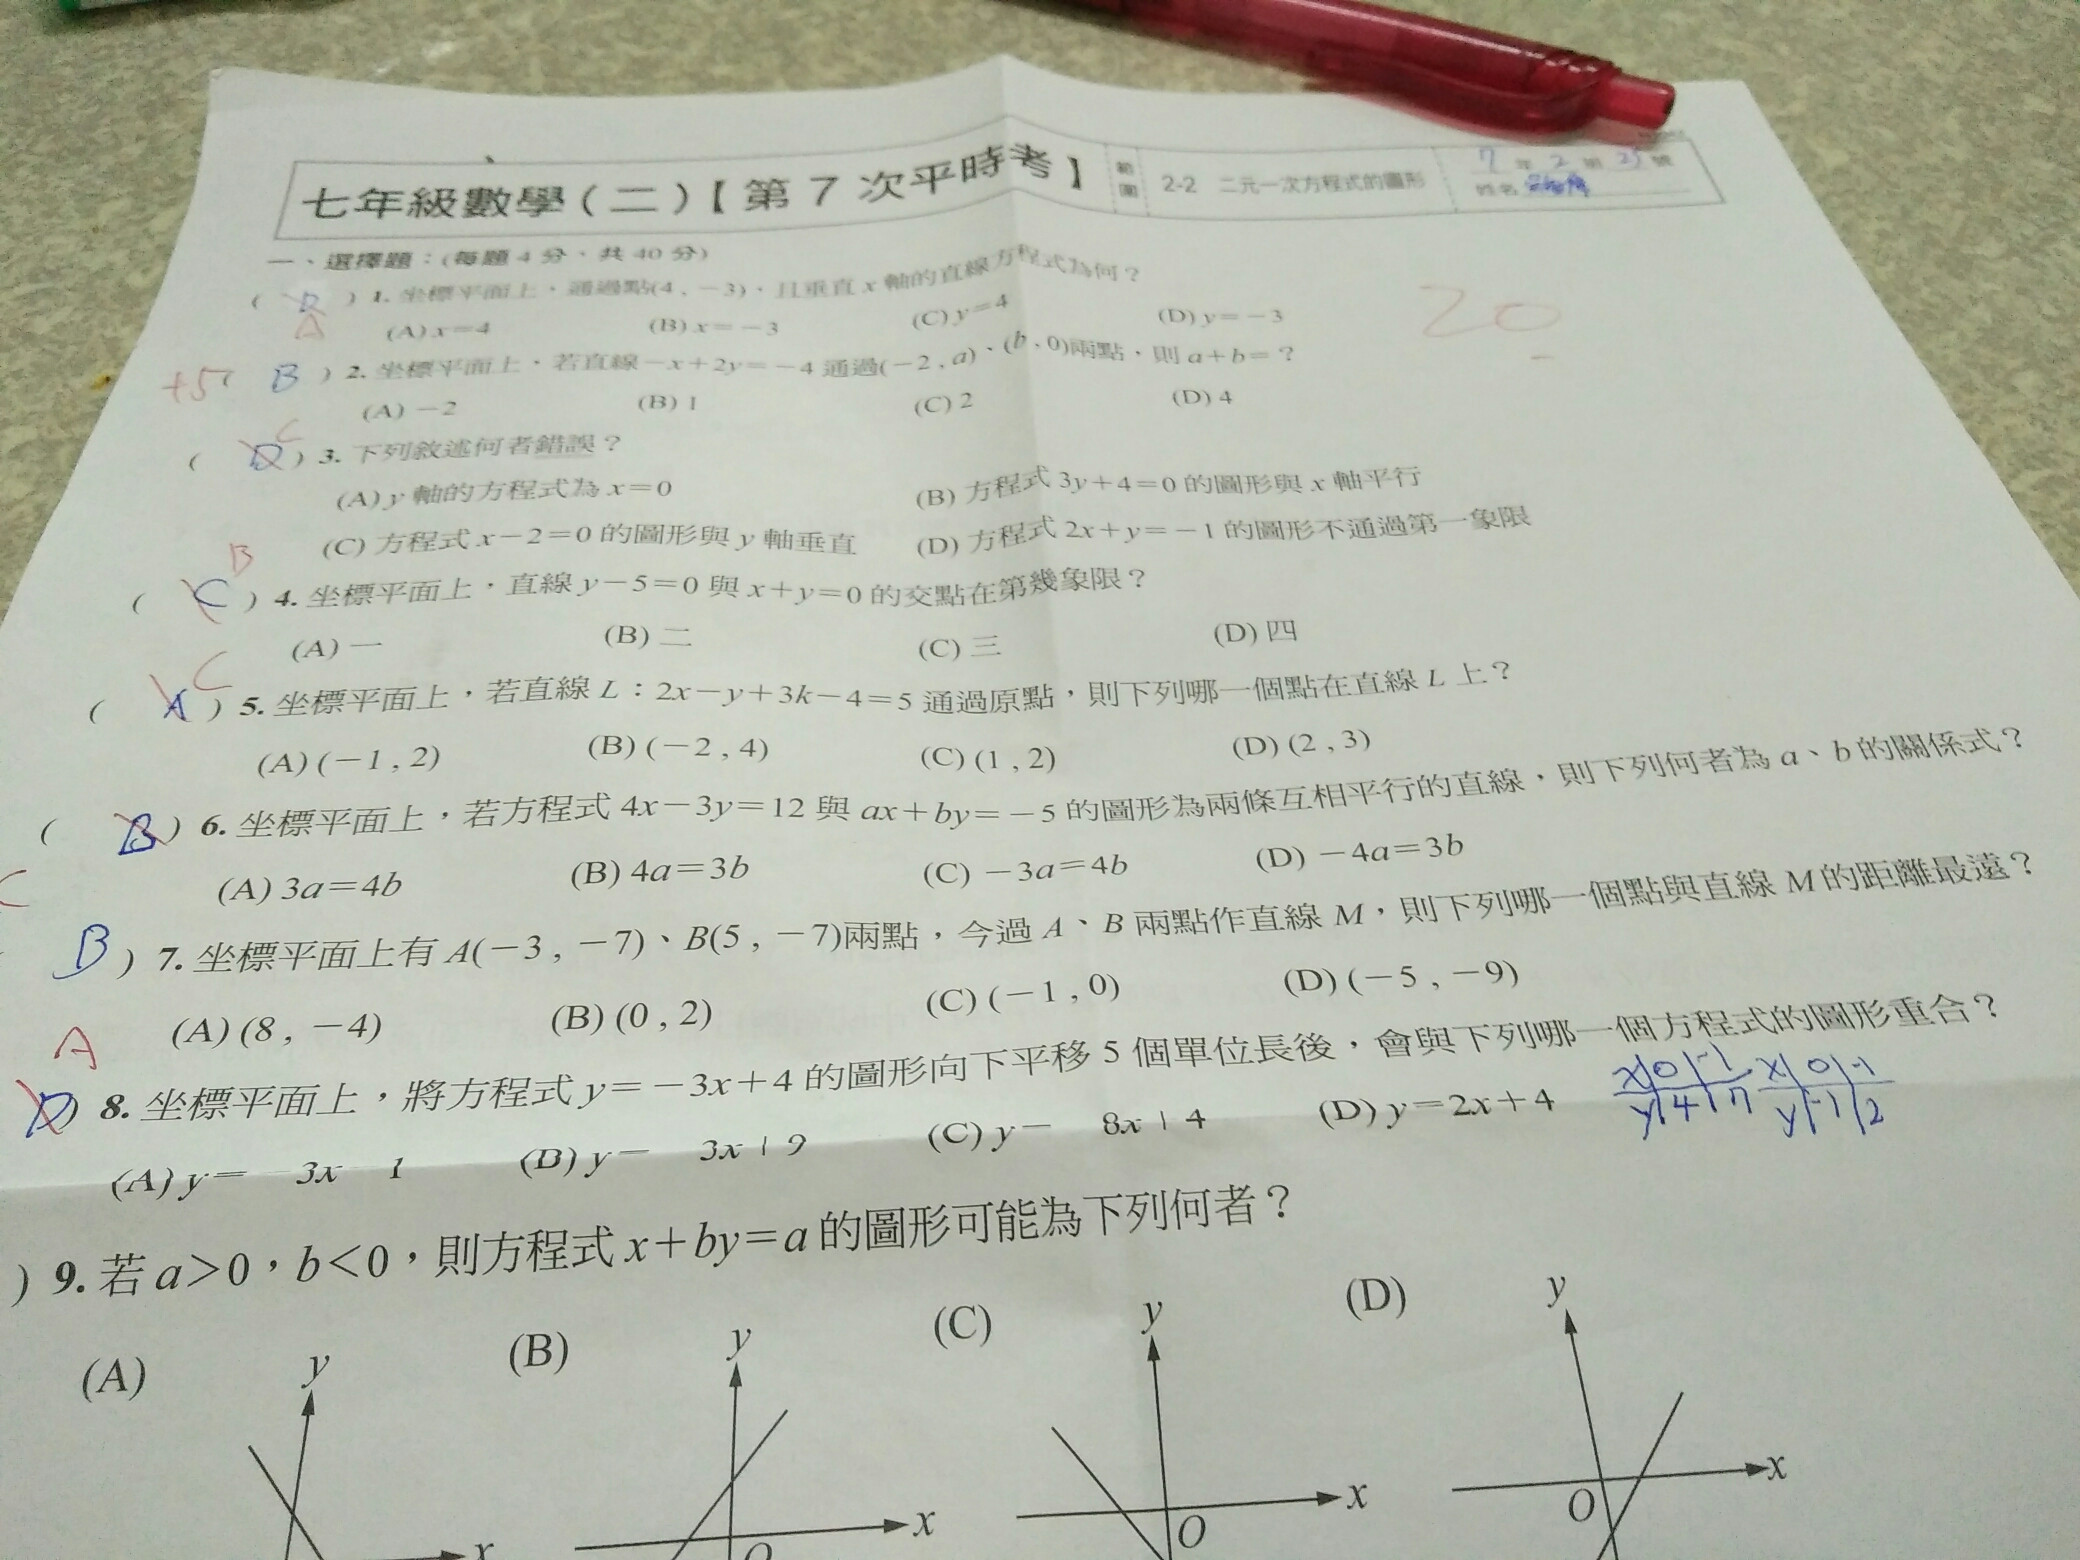 七年級數學(二)【第7次平時考】 範圍 2-2 二元一次方程式的圖形 7年2班25號
姓名
一、選擇題：(每題4分，共40分)
20
( D ) 1. 坐標平面上，通過點(4，-3)，且垂直 x 軸的直線方程式為何？
A
(A) x=4 (B) x=-3 (C) y=4 (D) y=-3
+5 ( B ) 2. 坐標平面上，若直線-x+2y=-4 通過(-2,a)、(b,0)兩點，則 a+b=？
(A) -2 (B) 1 (C) 2 (D) 4
C
( D ) 3. 下列敘述何者錯誤？
(A) y 軸的方程式為 x=0 (B) 方程式 3y+4=0 的圖形與 x 軸平行
(C) 方程式 x-2=0 的圖形與 y 軸垂直 (D) 方程式 2x+y=-1 的圖形不通過第一象限
B
( C ) 4. 坐標平面上，直線 y-5=0 與 x+y=0 的交點在第幾象限？
(A) 一 (B) 二 (C) 三 (D) 四
C
( A ) 5. 坐標平面上，若直線 L：2x-y+3k-4=5 通過原點，則下列哪一個點在直線 L 上？
(A) (-1,2) (B) (-2,4) (C) (1,2) (D) (2,3)
( B ) 6. 坐標平面上，若方程式 4x-3y=12 與 ax+by=-5 的圖形為兩條互相平行的直線，則下列何者為 a、b 的關係式？
C
(A) 3a=4b (B) 4a=3b (C) -3a=4b (D) -4a=3b
B ) 7. 坐標平面上有 A(-3,-7)、B(5,-7)兩點，今過 A、B 兩點作直線 M，則下列哪一個點與直線 M 的距離最遠？
(A) (8,-4) (B) (0,2) (C) (-1,0) (D) (-5,-9)
A
D ) 8. 坐標平面上，將方程式 y=-3x+4 的圖形向下平移 5 個單位長後，會與下列哪一個方程式的圖形重合？
(A) y=-3x-1 (B) y=-3x+9 (C) y=-8x+4 (D) y=2x+4
x 0 -1 x 0 -1
y 4 7 y -1 2
) 9. 若 a>0，b<0，則方程式 x+by=a 的圖形可能為下列何者？
(A) (B) (C) (D)
y y y y
x x x x
O O O